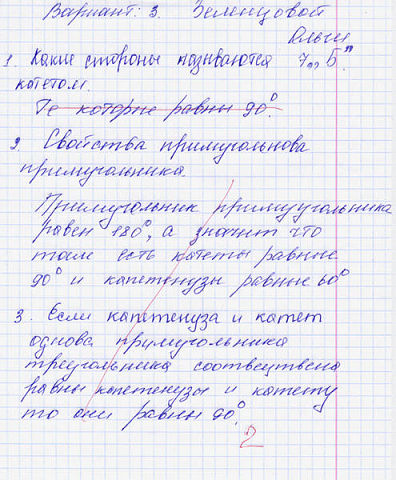 Вариант: 3. Зеленцовой
Ольги
1. Какие стороны называются 7„Б"
катетом.
Те которые равны 90°.
2. Свойства примугольнова
примугольника.
Примугольник примугугольника
равен 180°, а значит что
там есть катеты равные
90° и капетенузы равные 60°
3. Если капетенуза и катет
однова примугольника
треугольника соотвецтвена
равны капетенузы и катету
то они равны 90°.
2